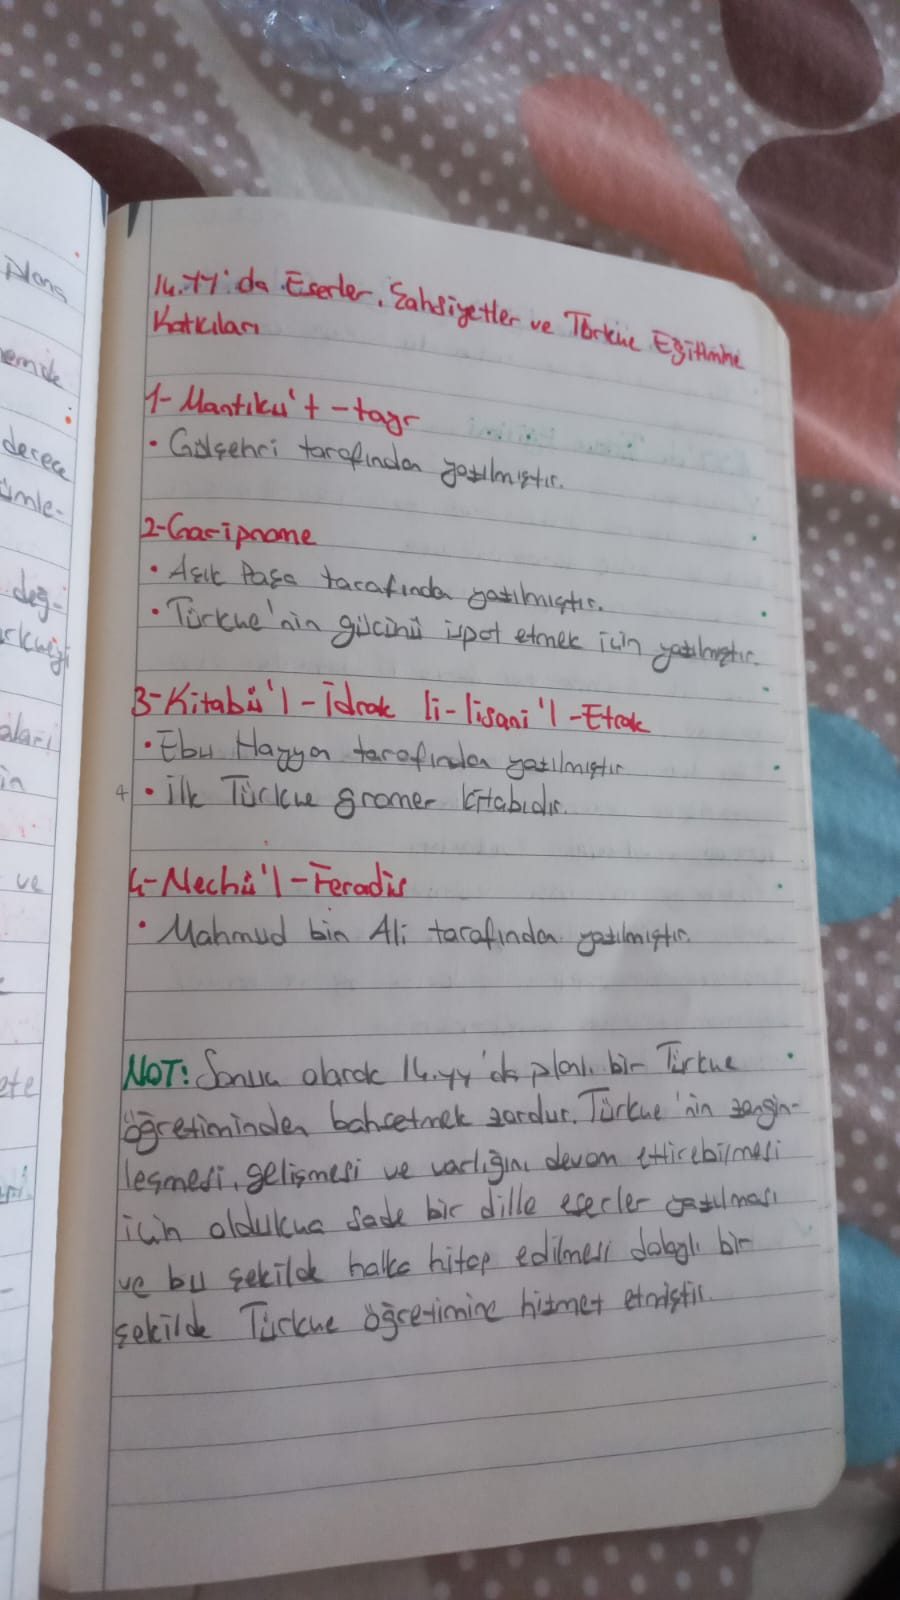 plana
emde
derece
ümle-
değ-
rkçeyi
aları
in
ve
ete
14.yy'da Eserler, Şahsiyetler ve Türkçe Eğitimine
Katkıları
1-Mantıku't-tayr
• Gülşehri tarafından yazılmıştır.
2-Garipname
• Aşık Paşa tarafından yazılmıştır.
• Türkçe'nin gücünü ispat etmek için yazılmıştır.
3-Kitabü'l-İdrak li-lisani'l-Etrak
• Ebu Hayyan tarafından yazılmıştır
4 • İlk Türkçe gramer kitabıdır.
4-Nechü'l-Feradis
• Mahmud bin Ali tarafından yazılmıştır.
NOT: Sonuç olarak 14.yy'da planlı bir Türkçe
öğretiminden bahsetmek zordur. Türkçe'nin zengin-
leşmesi, gelişmesi ve varlığını devam ettirebilmesi
için oldukça sade bir dille eserler yazılması
ve bu şekilde halka hitap edilmesi dolaylı bir
şekilde Türkçe öğretimine hizmet etmiştir.